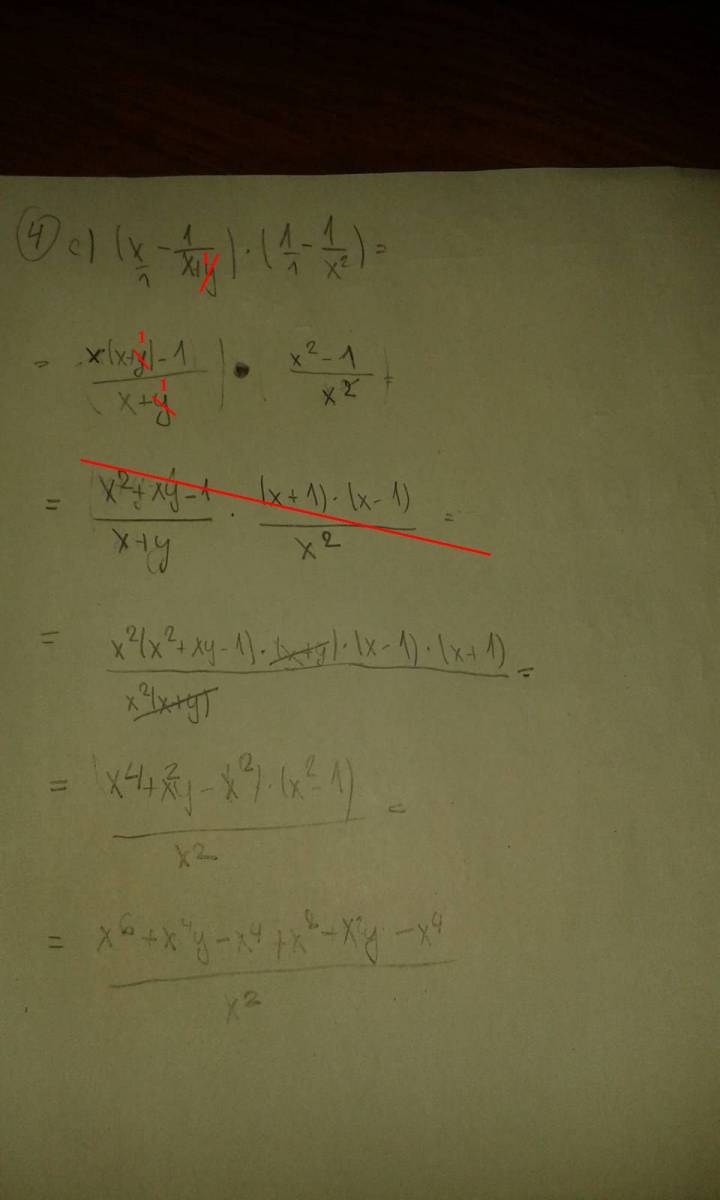 4 c) (x/1 - 1/(x+y 1)) · (1/1 - 1/x²) =
= (x·(x+y 1) - 1)/(x+y 1) · (x² - 1)/x² =
= (x² + xy - 1)/(x+y) · ((x+1)·(x-1))/x² =
= (x²(x² + xy - 1)·(x+y)·(x-1)·(x+1))/(x²(x+y)) =
= ((x⁴ + x²y - x²)·(x² - 1))/x² =
= (x⁶ + x⁴y - x⁴ + x⁸ - x²y - x⁴)/x²